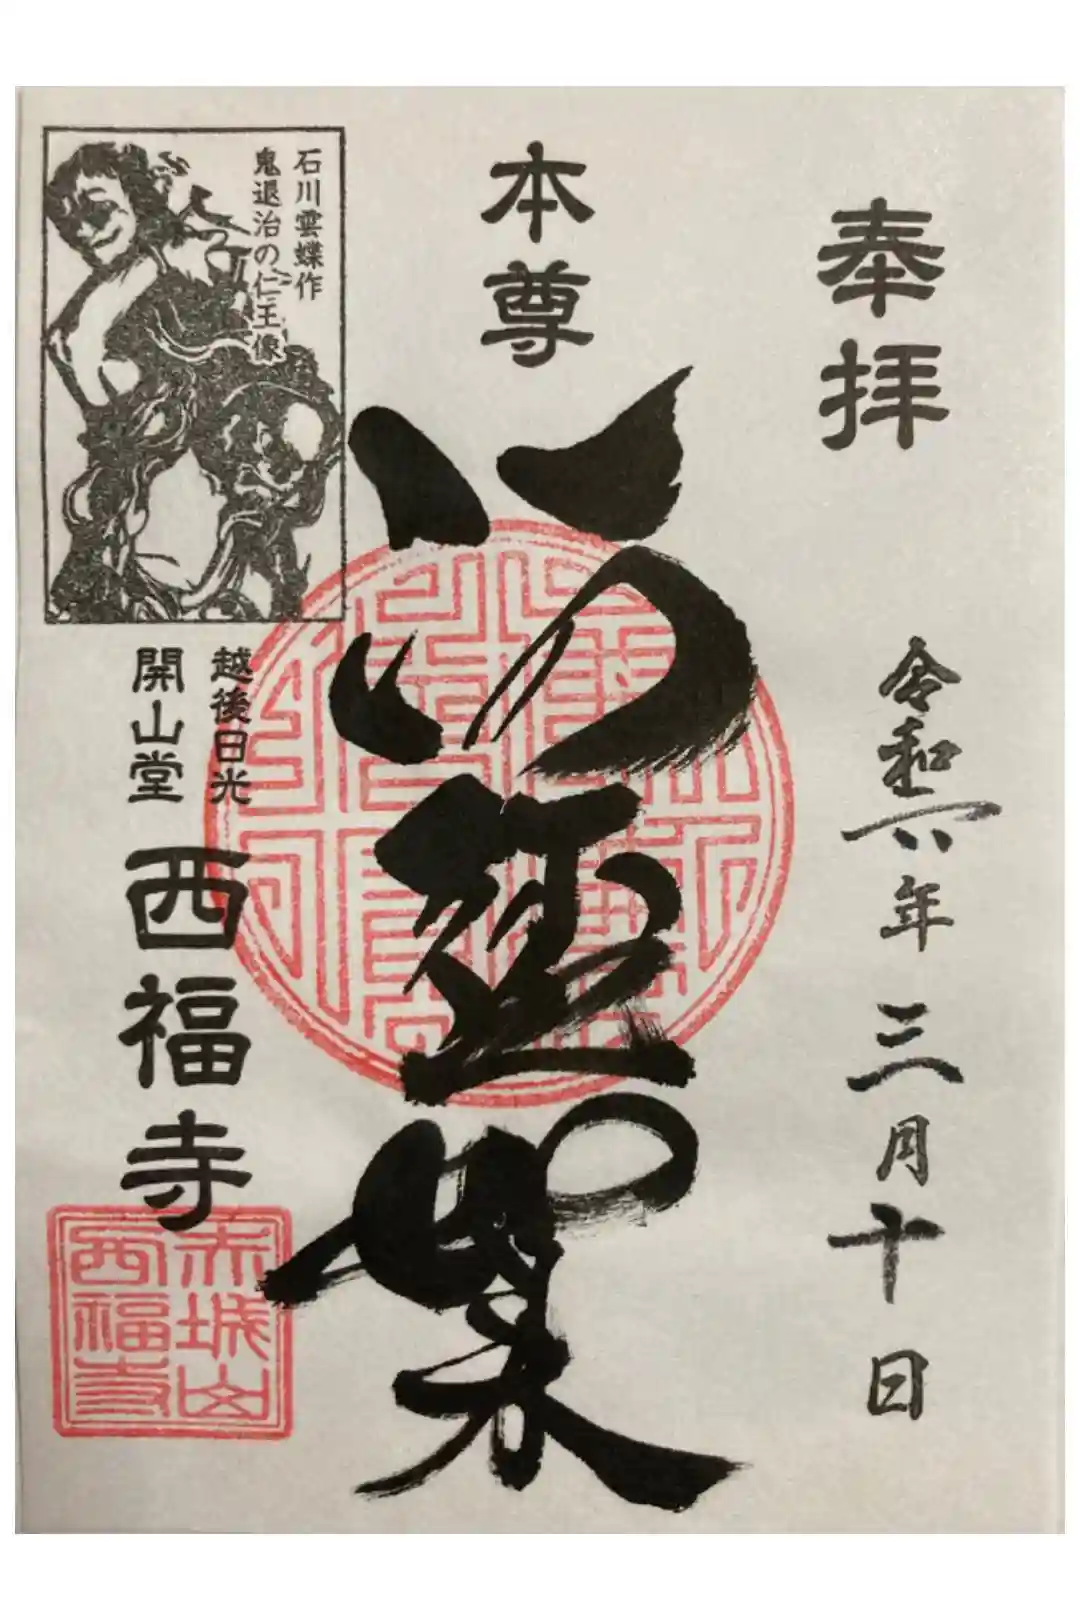 奉拝
令和六年三月十日
本尊
石川雲蝶作
鬼退治の仁王像
越後日光
開山堂
西福寺
赤城山
西福寺